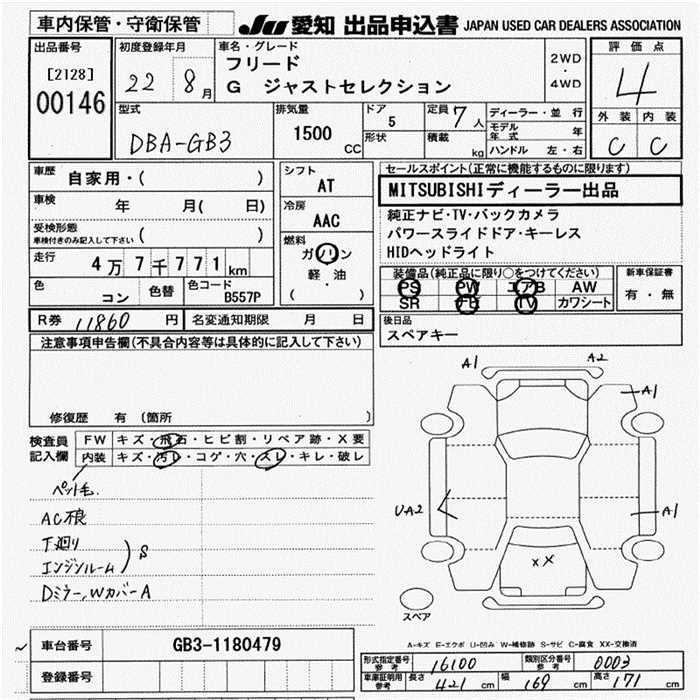 車内保管・守衛保管 JU 愛知 出品申込書 JAPAN USED CAR DEALERS ASSOCIATION
出品番号
[2128]
00146
初度登録年月
22 8月
車名・グレード
フリード
G ジャストセレクション
2WD
・
4WD
評価点
4
外装 内装
C C
型式
DBA-GB3
排気量
1500 CC
ドア
5
形状
定員 7人
積載 kg
ディーラー・並行
モデル年式 年
ハンドル 左・右
車歴 自家用・( )
車検 年 月( 日)
受検形態
車検付きのみ記入して下さい ( )
走行 4万7千771km
色 コン 色替 色コード B557P
シフト
AT
冷房
AAC
燃料
ガソリン
軽・油
( )
セールスポイント(正常に機能するものに限ります)
MITSUBISHIディーラー出品
純正ナビ・TV・バックカメラ
パワースライドドア・キーレス
HIDヘッドライト
装備品(純正品に限り○をつけてください)
PS PW エアB AW
SR ナビ TV カワシート
新車保証書
有・無
R券 11860 円 名変通知期限 月 日
後日品
スペアキー
注意事項申告欄(不具合内容等は具体的に記入して下さい)
修復歴 有(箇所 )
検査員記入欄
FW キズ・飛石・ヒビ割・リペア跡・X要
内装 キズ・汚レ・コゲ・穴・スレ・キレ・破レ
ペット毛.
AC根
下廻り
エンジンルーム ) S
Dミラー,WカバーA
A1 A2
A1
UA2
A1
XX
スペア
A-キズ E-エクボ U-凹み W-補修跡 S-サビ C-腐食 XX-交換済
車台番号 GB3-1180479
登録番号
形式指定番号 参考 16100 類別区分番号 参考 0003
車庫証明用 参考 長さ 421 cm 幅 169 cm 高さ 171 cm